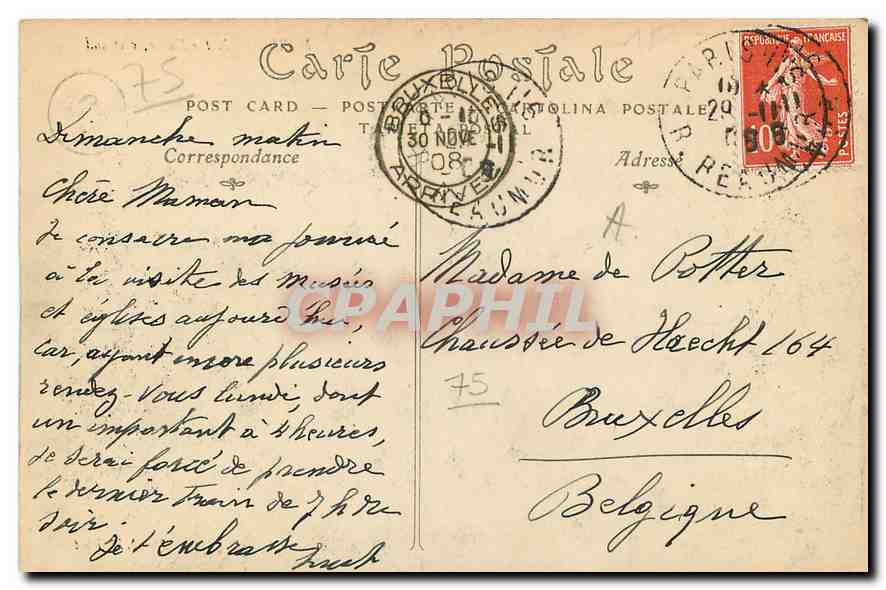 Carte Postale
POST CARD — POSTKARTE — CARTOLINA POSTALE
TARJETA POSTAL
Correspondance
Adresse
RÉPUBLIQUE FRANÇAISE
POSTES
10
PARIS
29 -11
R. RÉAUMUR
BRUXELLES
30 NOVE
08
ARRIVÉE
RÉAUMUR
75
Dimanche matin
Chère Maman
Je consacre ma journée
à la visite des musées
et églises aujourd'hui,
car, ayant encore plusieurs
rendez-vous lundi, dont
un important à 4 heures,
je serai forcé de prendre
le dernier train de 7 h du
soir.
Je t'embrasse
A
Madame de Potter
Chaussée de Haecht 164
75
Bruxelles
Belgique
CPAPHIL